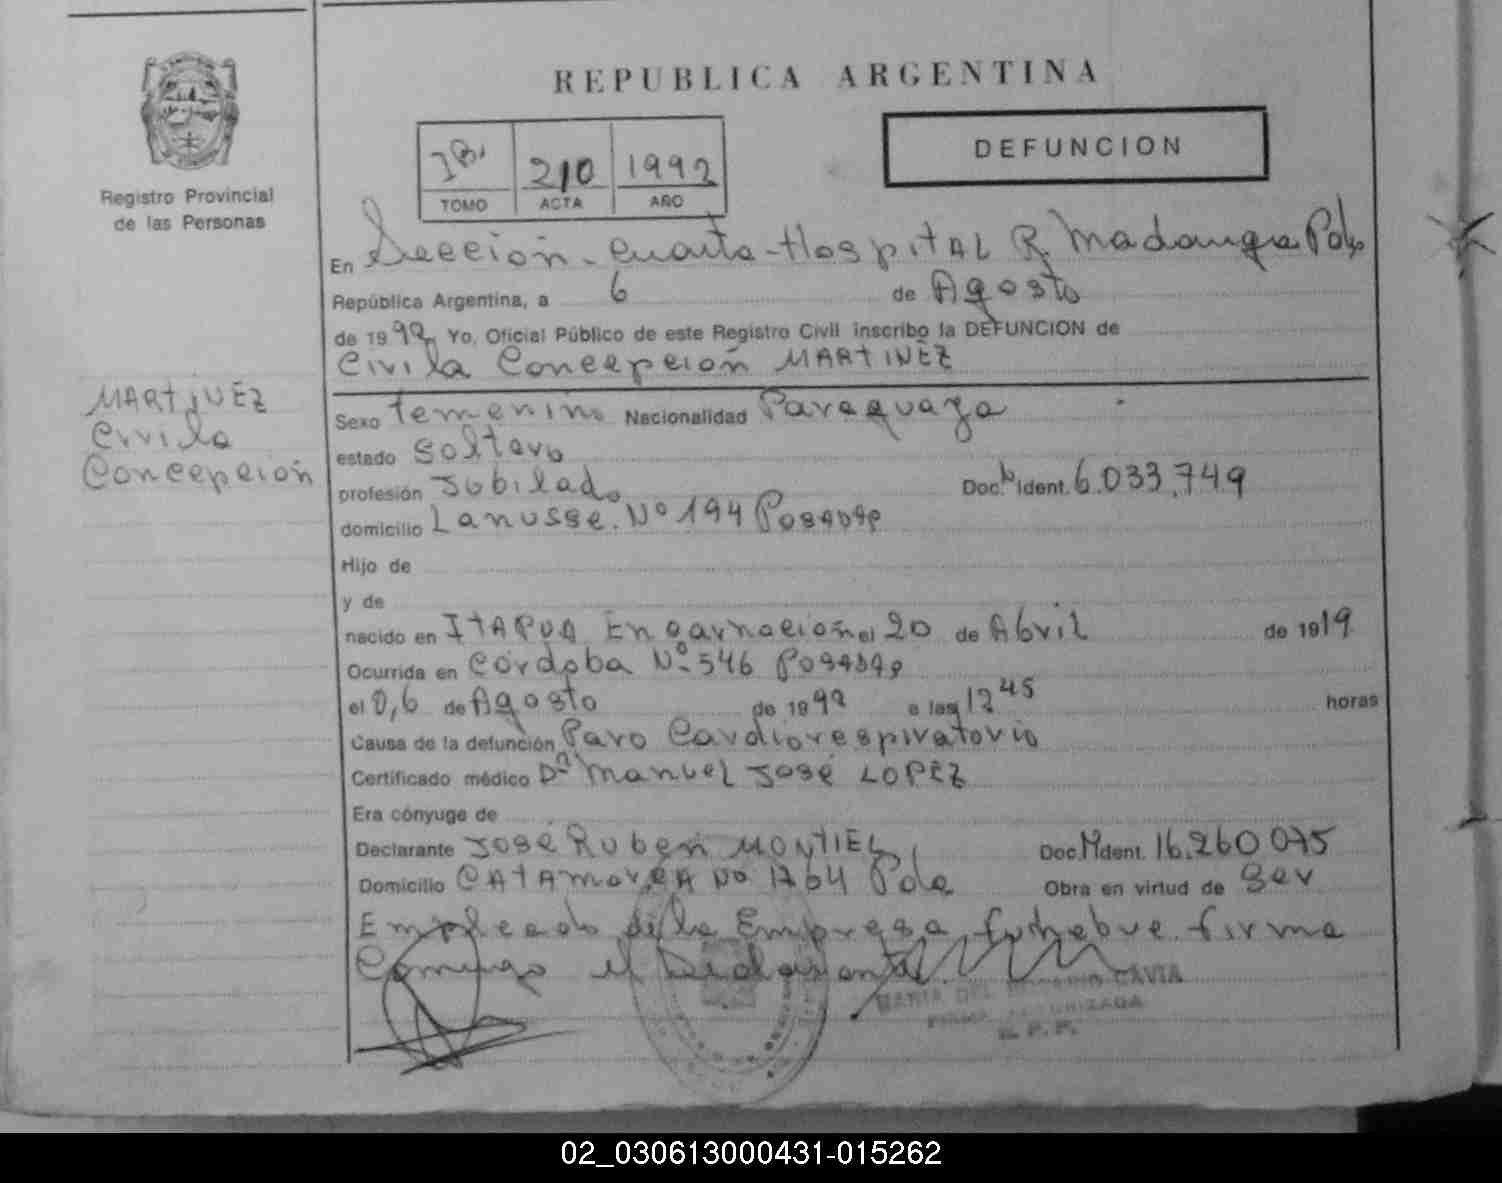 REPUBLICA ARGENTINA
Registro Provincial
de las Personas
210 1992
TOMO ACTA AÑO
DEFUNCION
En Sección Cuarta - Hospital R. Madariaga Pdas
República Argentina, a 6 de Agosto
de 1992 Yo, Oficial Público de este Registro Civil inscribo la DEFUNCION de
Civila Concepción MARTINEZ
MARTINEZ
Civila
Concepción
Sexo Femenino Nacionalidad Paraguaya
estado Soltero
profesión Jubilado Doc. Ident. 6.033.749
domicilio Lanusse Nº 194 Posadas
Hijo de
y de
nacido en ITAPUA Encarnación el 20 de Abril de 1919
Ocurrida en Córdoba Nº 546 Posadas
el 0,6 de Agosto de 1992 a las 12 45 horas
Causa de la defunción Paro Cardiorespiratorio
Certificado médico Dr Manuel José LOPEZ
Era cónyuge de
Declarante José Ruben MONTIEL Doc. M Ident. 16.260.075
Domicilio CATAMARCA Nº 1764 Pdas Obra en virtud de Ser
Empleado de la Empresa funebre firma
Conmigo el Declarante
MARIA DEL ROSARIO CAVIA
FIRMA AUTORIZADA
R. P. P.
02_030613000431-015262